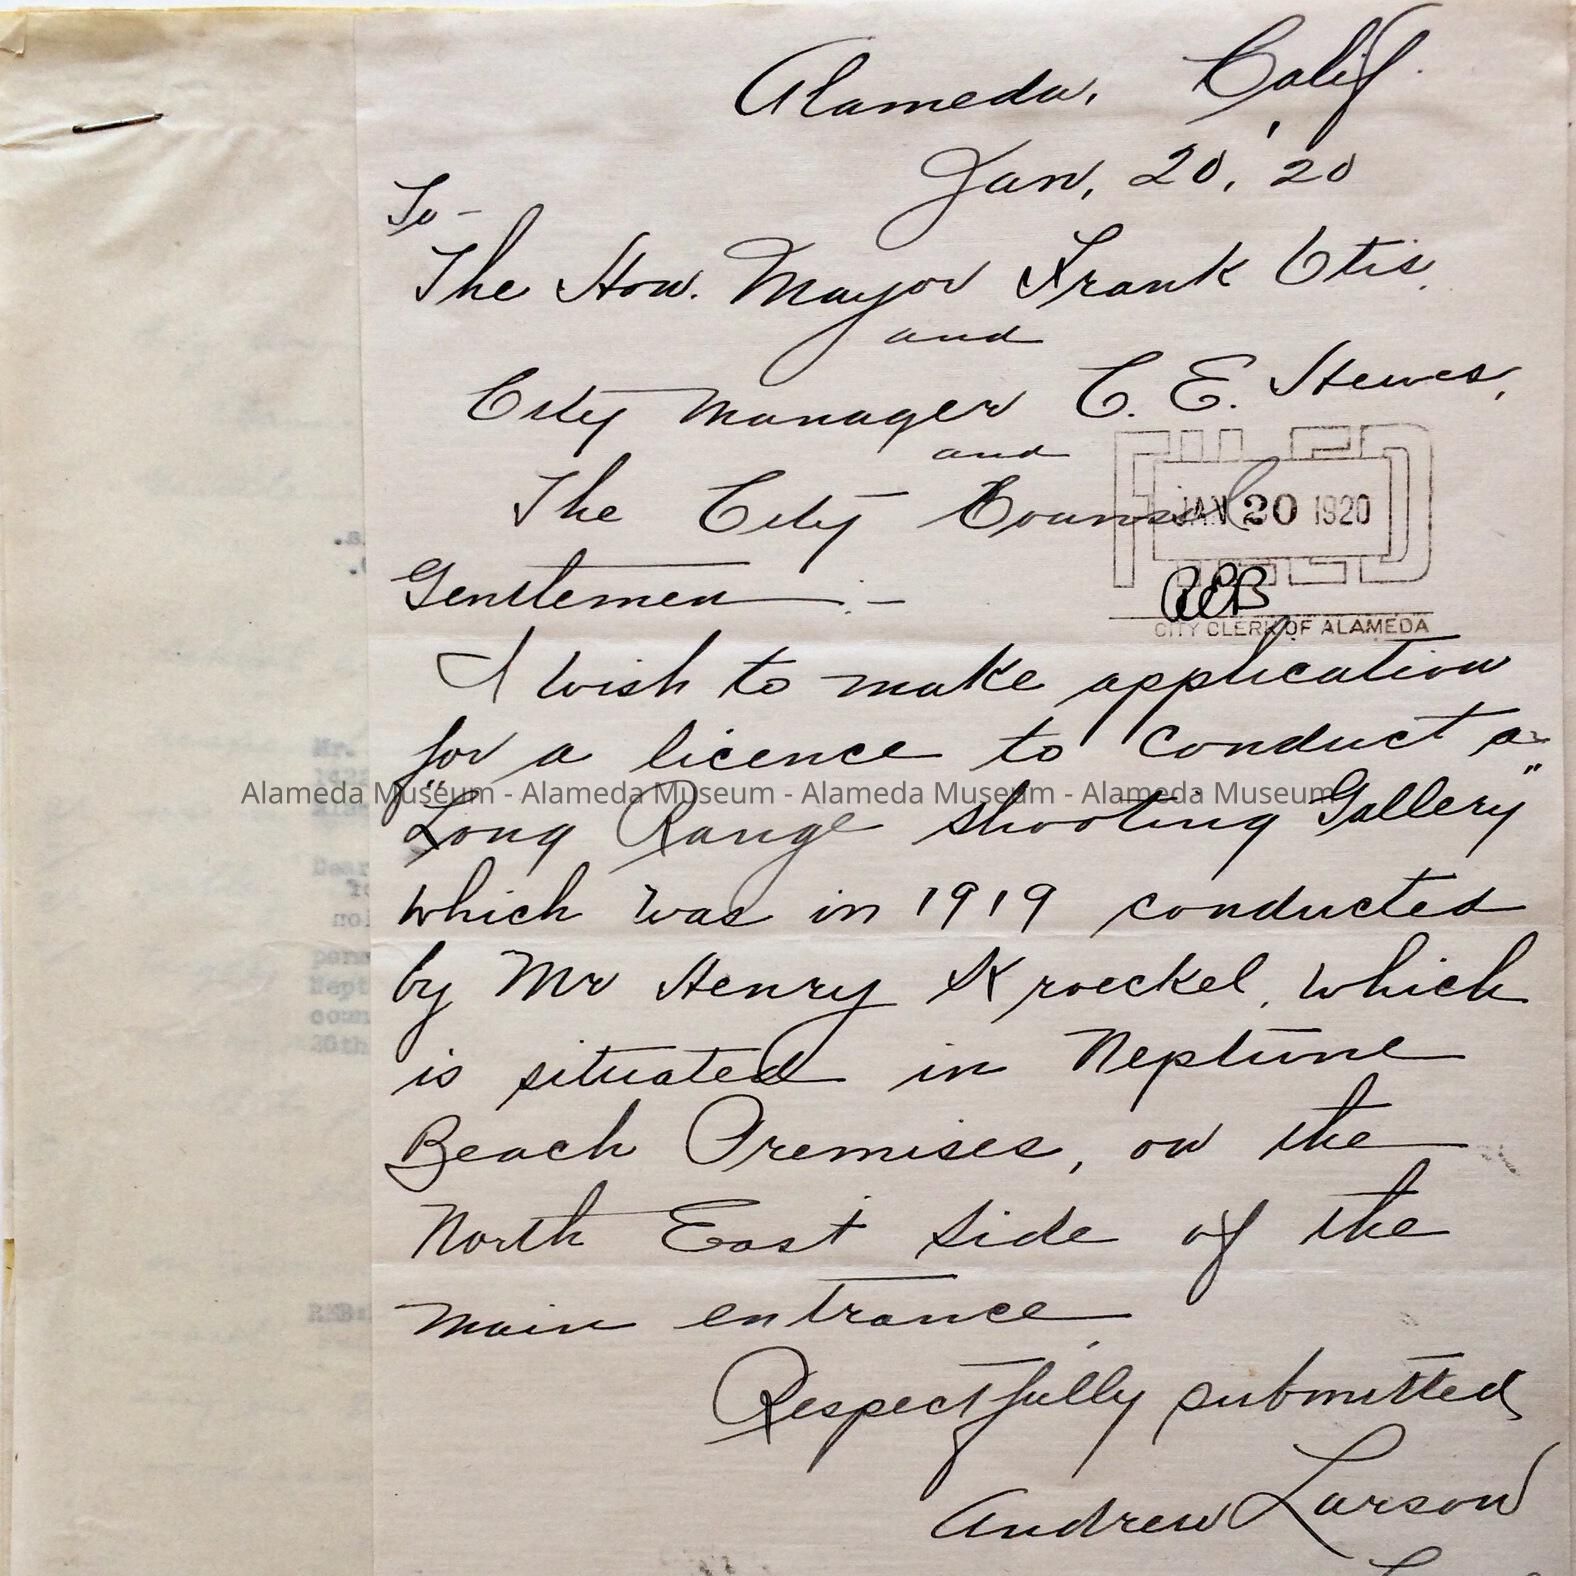 Alameda, Calif.
Jan, 20, '20
To -
The Hon. Mayor Frank Otis,
and
City Manager C. E. Hewes,
and
The City Counsel
FILED
JAN 20 1920
CITY CLERK OF ALAMEDA
Gentlemen :-
I wish to make application
for a licence to conduct a
Alameda Museum - Alameda Museum - Alameda Museum - Alameda Museum
"Long Range Shooting Gallery"
which was in 1919 conducted
by Mr Henry Kroeckel, which
is situated in Neptune
Beach Premises, on the
North East side of the
main entrance.
Respectfully submitted,
Andrew Larson
Mr.
Dear